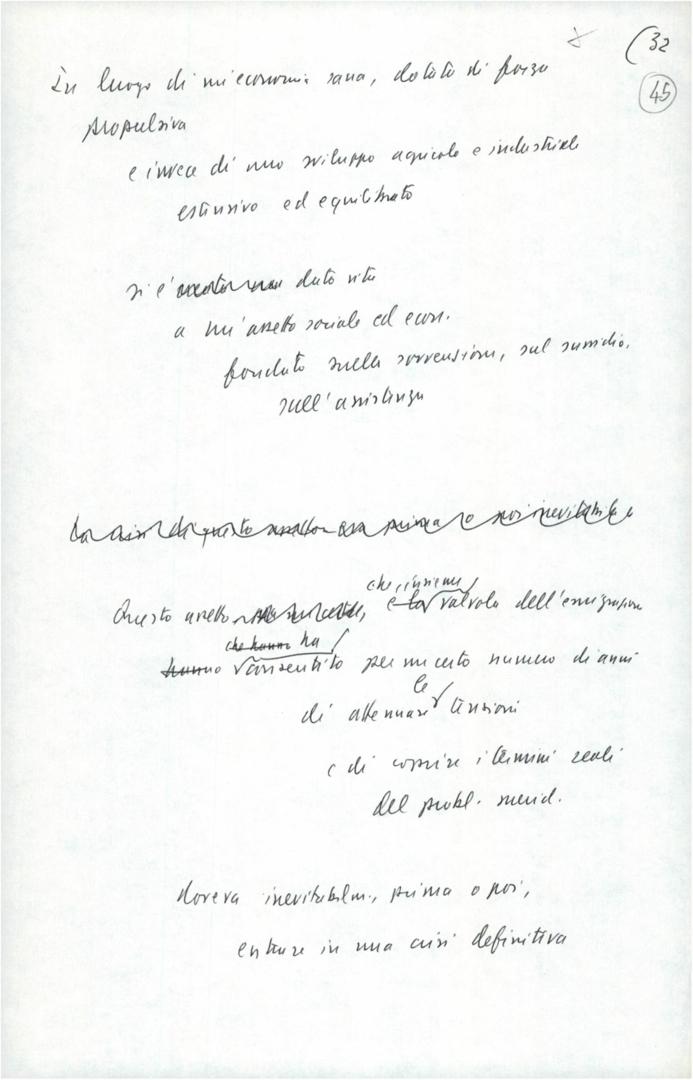 (32
45
In luogo di un'economia sana, dotata di forza
propulsiva
e invece di uno sviluppo agricolo e industriale
estensivo ed equilibrato
si è data vita
a un'assetto sociale ed econ.
fondato sulla sovvenzione, sul sussidio,
sull'assistenza
La crisi di questo assetto era prima o poi inevitabile e
che, insieme
Questo assetto, e la valvola dell'emigrazione
che hanno ha
hanno consentito per un certo numero di anni
le
di attenuare tensioni
e di coprire i termini reali
del probl. merid.
doveva inevitabilm., prima o poi,
entrare in una crisi definitiva